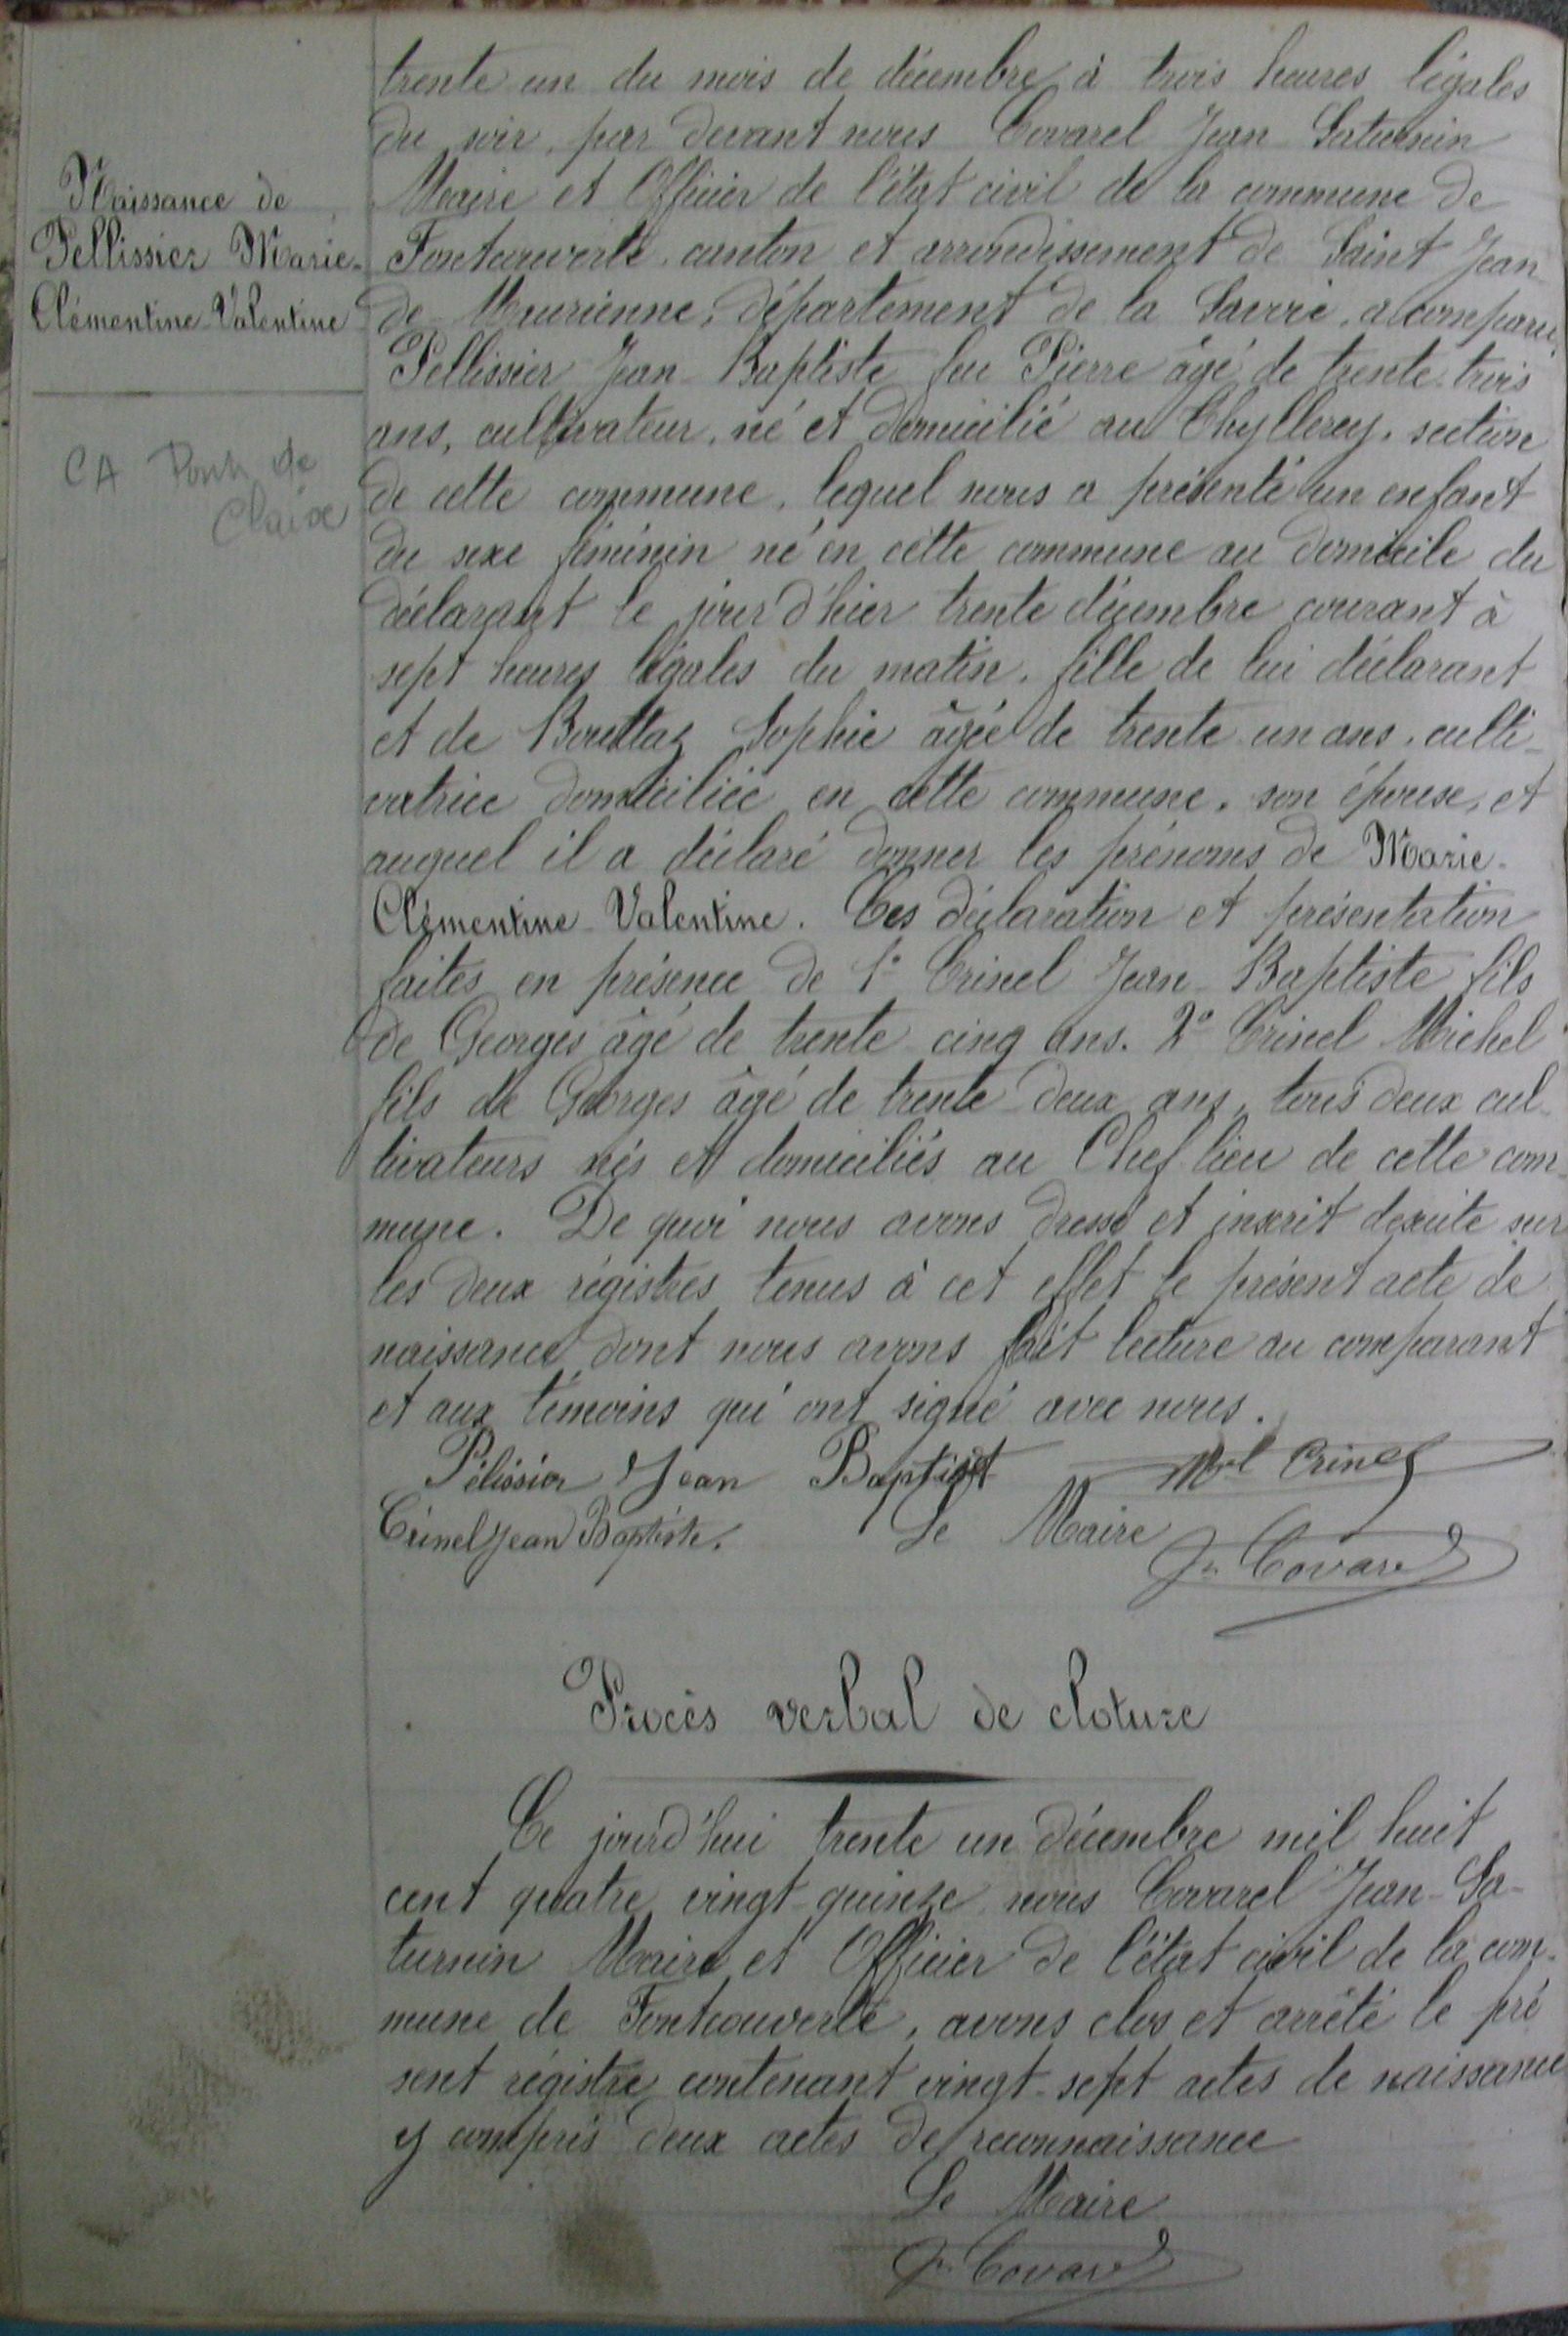 Naissance de
Pellissier Marie-
Clémentine-Valentine
CA Pont de
Claix
trente un du mois de décembre à trois heures légales
du soir, par devant nous Covarel Jean Saturnin
Maire et Officier de l'état civil de la commune de
Fontcouverte, canton et arrondissement de Saint Jean
de Maurienne, département de la Savoie, a comparu,
Pellissier Jean-Baptiste feu Pierre âgé de trente-trois
ans, cultivateur, né et domicilié au Chyllerey, section
de cette commune, lequel nous a présenté un enfant
du sexe féminin né en cette commune au domicile du
déclarant le jour d'hier trente décembre courant à
sept heures légales du matin, fille de lui déclarant
et de Bouttaz Sophie âgée de trente-un ans, culti-
vatrice domiciliée en cette commune, son épouse, et
auquel il a déclaré donner les prénoms de Marie-
Clémentine-Valentine. Ces déclaration et présentation
faites en présence de 1° Crinel Jean-Baptiste fils
de Georges âgé de trente-cinq ans. 2° Crinel Michel
fils de Georges âgé de trente-deux ans, tous deux cul-
tivateurs nés et domiciliés au Chef-lieu de cette com-
mune. De quoi nous avons dressé et inscrit desuite sur
les deux régistres tenus à cet effet le présent acte de
naissance dont nous avons fait lecture au comparant
et aux témoins qui ont signé avec nous.
Pélissier Jean Baptist Mel Crinel
Crinel Jean Baptiste. Le Maire
Jn Covarel
Procès verbal de cloture
Ce jourd'hui trente un décembre mil huit
cent quatre vingt-quinze nous Covarel Jean-Sa-
turnin Maire et Officier de l'état civil de la com-
mune de Fontcouverte, avons clos et arrêté le pré
sent régistre contenant vingt-sept actes de naissance
y compris deux actes de reconnaissance
Le Maire
Jn Covarel